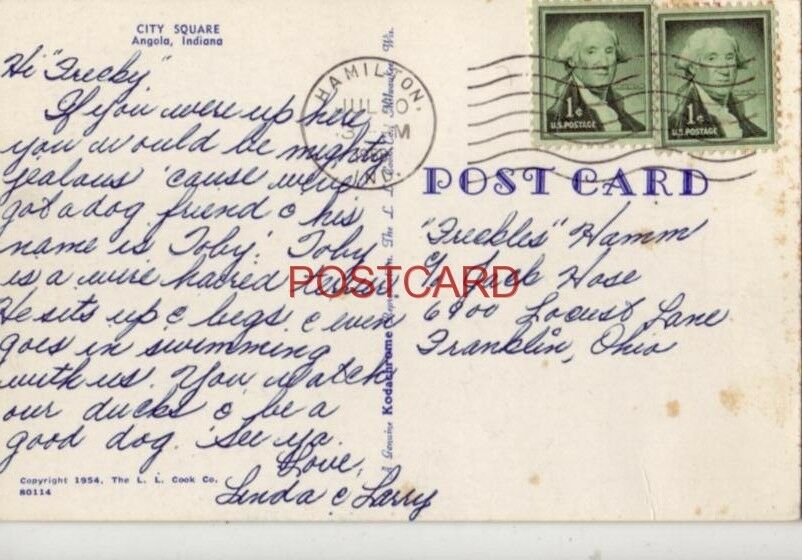 CITY SQUARE
Angola, Indiana
Hi "Frecky"
If you were up here
you would be mighty
jealous 'cause we've
got a dog friend & his
name is Toby. Toby
is a wire haired
He sits up & begs & even
goes in swimming
with us. You watch
our ducks & be a
good dog. See ya.
Love,
Linda & Larry
Copyright 1954, The L. L. Cook Co.
80114
Genuine Kodachrome The L. L. Cook Co. Milwaukee Wis.
HAMILTON,
JUL
M
IND.
1¢
U.S. POSTAGE
1¢
U.S. POSTAGE
POST CARD
"Freckles" Hamm
c/o Jack Hose
6900 Locust Lane
Franklin, Ohio
POSTCARD